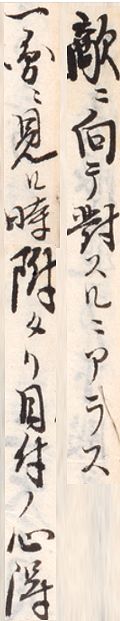 敵ニ向テ對スルニアラス
一驚ニ見ル時附タリ目付ノ心得